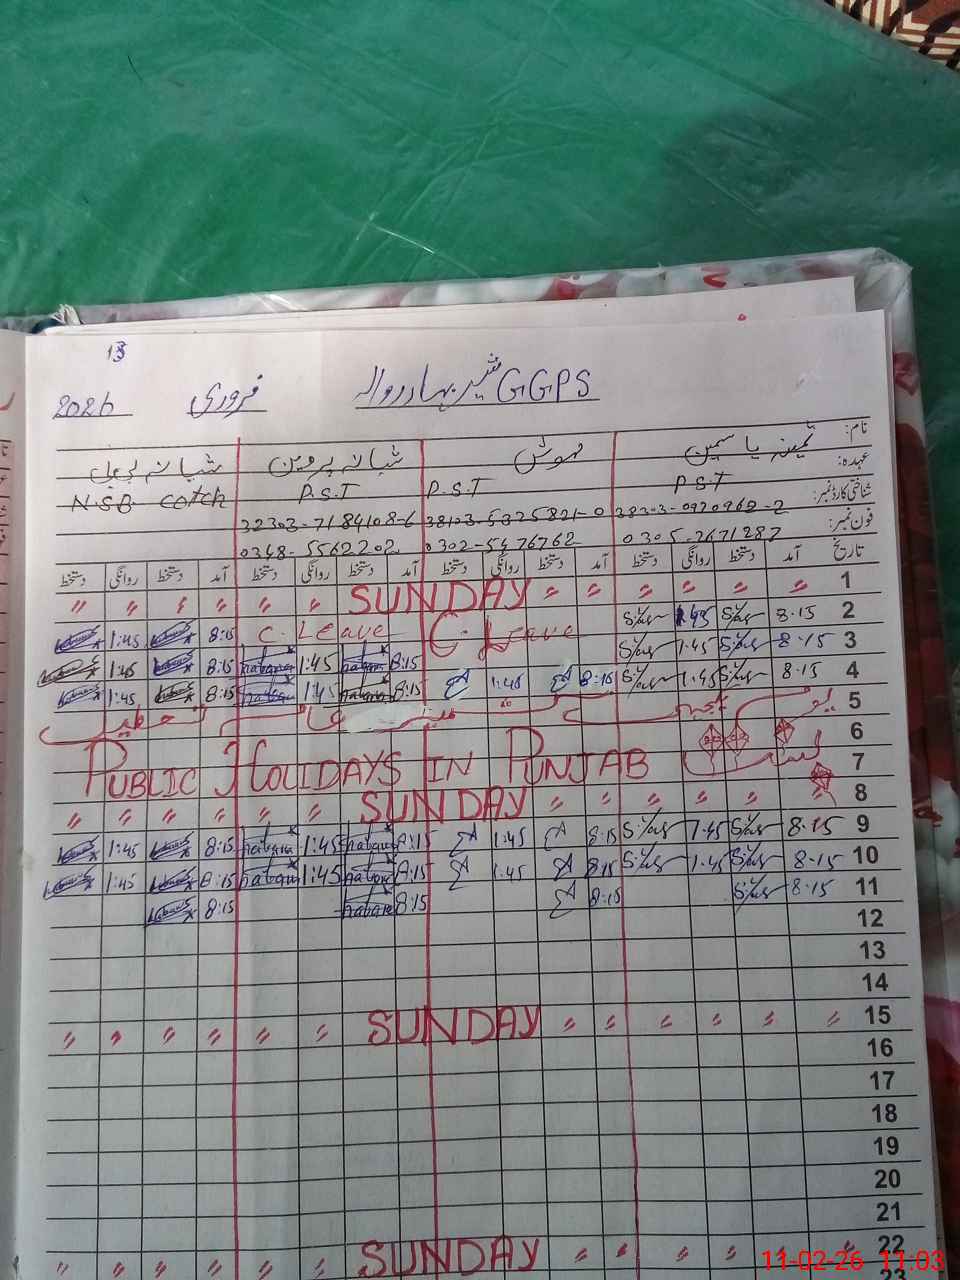 13
GGPS شیر بہادر والہ فروری 2026
نام: ثمینہ یاسمین مہوش شبانہ پروین شبانہ
عہدہ: P.S.T P.S.T P.S.T N.S.B coach
شناختی کارڈ نمبر: 38303-0920962-2 38103-5325821-0 32303-7184108-6
فون نمبر: 0305-7671287 0302-5476762 0348-5562202
تاریخ آمد دستخط روانگی دستخط آمد دستخط روانگی دستخط آمد دستخط روانگی دستخط آمد دستخط روانگی دستخط
1 〃 〃 〃 〃 〃 〃 SUNDAY 〃 〃 〃 〃 〃 〃
2 8:15 1:45 C. Leave C. Leave 8:15 1:45
3 8:15 1:45 8:15 1:45 8:15 1:45
4 8:15 1:45 8:15 1:45 8:15 1:45 8:15 1:45
5 یوم کشمیر عام تعطیل
6
7 PUBLIC HOLIDAYS IN PUNJAB بسنت
8 〃 〃 〃 〃 〃 〃 SUNDAY 〃 〃 〃 〃 〃 〃
9 8:15 1:45 8:15 1:45 8:15 1:45 8:15 1:45
10 8:15 1:45 8:15 1:45 8:15 1:45 8:15 1:45
11 8:15 8:15 8:15 8:15
12
13
14
15 〃 〃 〃 〃 〃 〃 SUNDAY 〃 〃 〃 〃 〃 〃
16
17
18
19
20
21
22 〃 〃 〃 〃 〃 SUNDAY 〃 〃 〃 〃 〃 〃
23
11-02-26 11:03